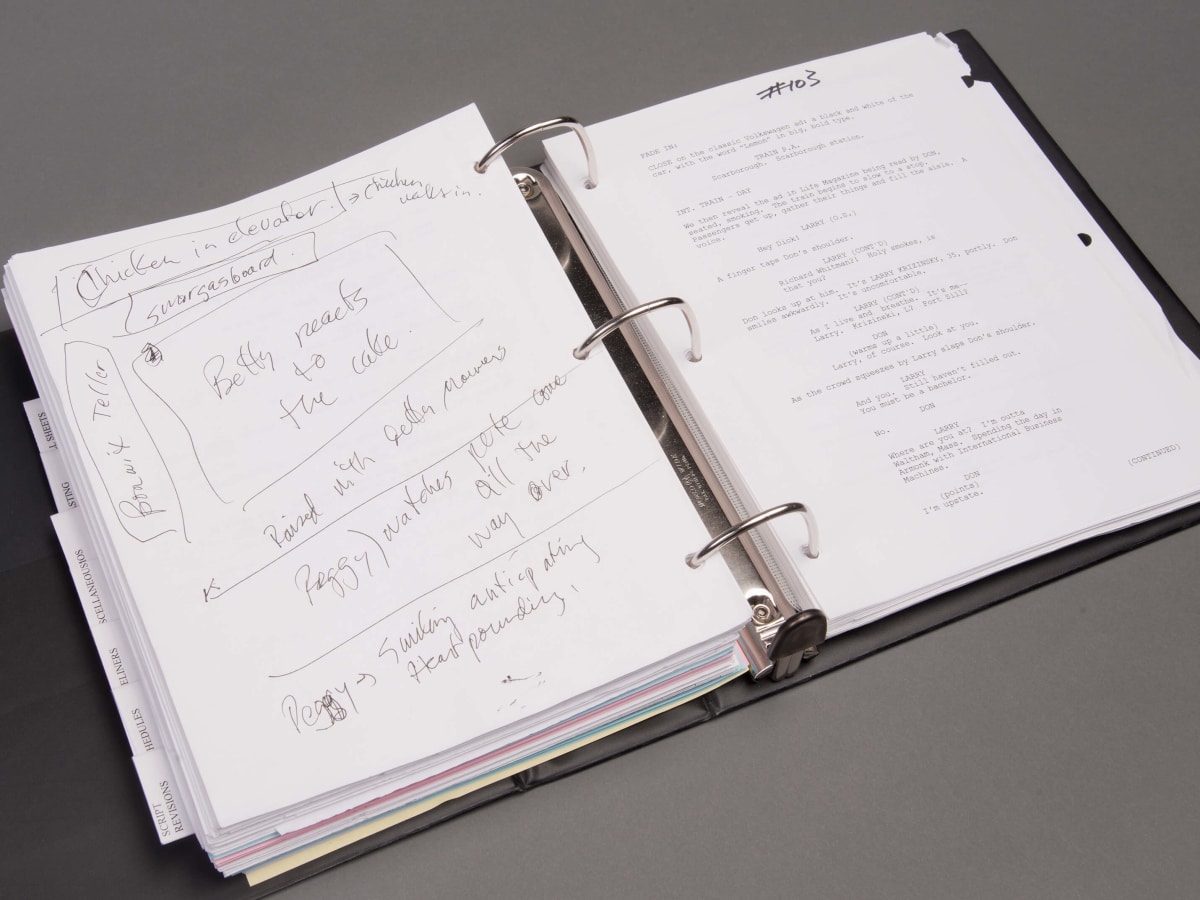 Chicken in elevator. → chicken
walks in.
Swargasboard.
Betty reacts
to
the cake.
Teller
Raised with better
Peggy) watches Pete come
all the
way over.
Peggy → Smiling anticipating
Heart pounding.
SHEETS
SCELLANEOUSIOS
ELINERS
HEDULES
SCRIPT
REVISIONS
#103
FADE IN:
CLOSE on the classic Volkswagen ad: a black and white of the
car, with the word "Lemon" in big, bold type.
TRAIN P.A.
Scarborough. Scarborough station.
INT. TRAIN - DAY
We then reveal the ad in Life Magazine being read by DON,
seated, smoking. The train begins to slow to a stop.
Passengers get up, gather their things and fill the aisle. A
voice.
LARRY (O.S.)
Hey Dick!
A finger taps Don's shoulder.
LARRY (CONT'D)
Richard Whitman? Holy smokes, is
that you?
Don looks up at him. It's LARRY KRIZINSKY, 35, portly. Don
smiles awkwardly. It's uncomfortable.
LARRY (CONT'D)
As I live and breathe. It's me--
Larry. Krizinski, L? Fort Sill?
DON
(warms up a little)
Larry, of course. Look at you.
As the crowd squeezes by Larry slaps Don's shoulder.
LARRY
And you. Still haven't filled out.
You must be a bachelor.
DON
No.
LARRY
Where are you at? I'm outta
Waltham, Mass. Spending the day in
Armonk with International Business
Machines.
DON
(points)
I'm upstate.
(CONTINUED)